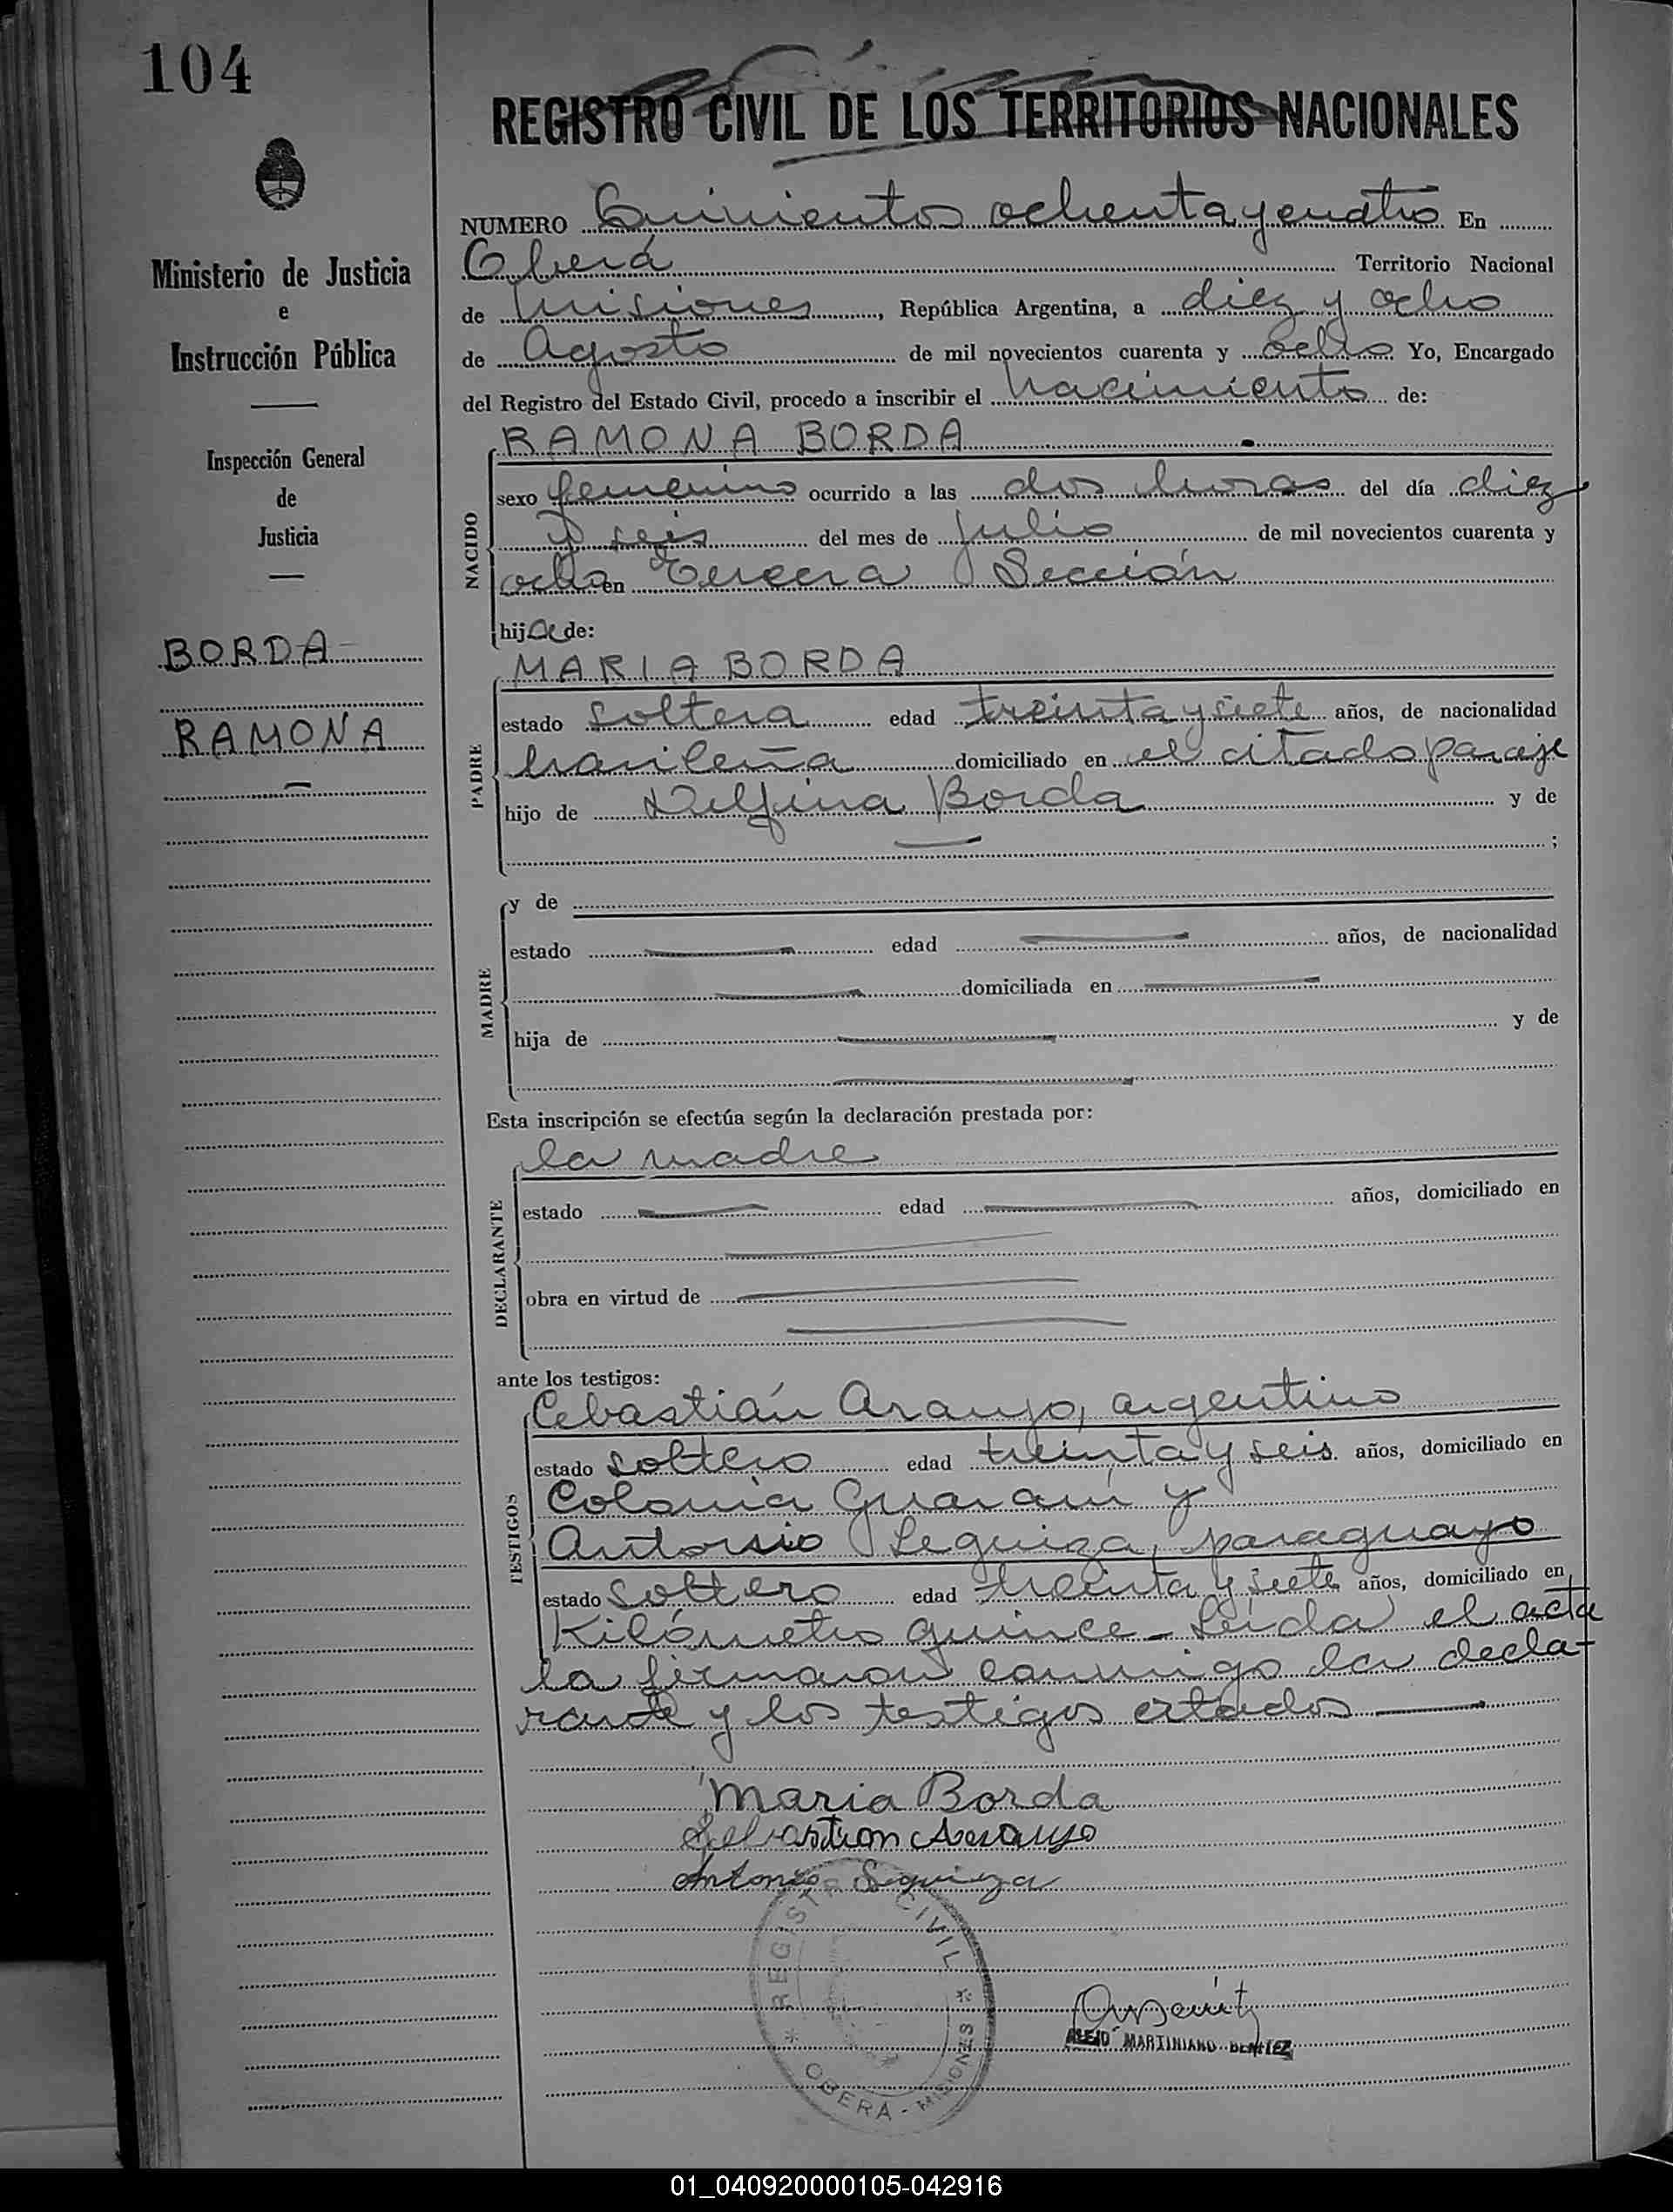 104
REGISTRO CIVIL DE LOS TERRITORIOS NACIONALES
Ministerio de Justicia
e
Instrucción Pública
Inspección General
de
Justicia
BORDA
RAMONA
NUMERO Quinientos ochenta y cuatro En
Oberá Territorio Nacional
de Misiones, República Argentina, a diez y ocho
de Agosto de mil novecientos cuarenta y ocho Yo, Encargado
del Registro del Estado Civil, procedo a inscribir el nacimiento de:
RAMONA BORDA
NACIDO
sexo femenino ocurrido a las dos horas del día diez
y seis del mes de julio de mil novecientos cuarenta y
ocho en Tercera Sección
hija de:
MARIA BORDA
PADRE
estado soltera edad treinta y siete años, de nacionalidad
brasileña domiciliado en el citado paraje
hijo de Delfina Borda y de
;
MADRE
y de
estado edad años, de nacionalidad
domiciliada en
hija de y de
Esta inscripción se efectúa según la declaración prestada por:
la madre
DECLARANTE
estado edad años, domiciliado en
obra en virtud de
ante los testigos:
TESTIGOS
Cebastián Araujo, argentino
estado soltero edad treinta y seis años, domiciliado en
Colonia Guaraní y
Antonio Leguiza, paraguayo
estado soltero edad treinta y siete años, domiciliado en
Kilómetro quince - Leída el acta
la firmaron conmigo la decla-
rante y los testigos citados
Maria Borda
Sebastian Araujo
Antonio
REGISTRO CIVIL
OBERA - MISIONES
ALEJO MARTINIANO BENITEZ
01_040920000105-042916